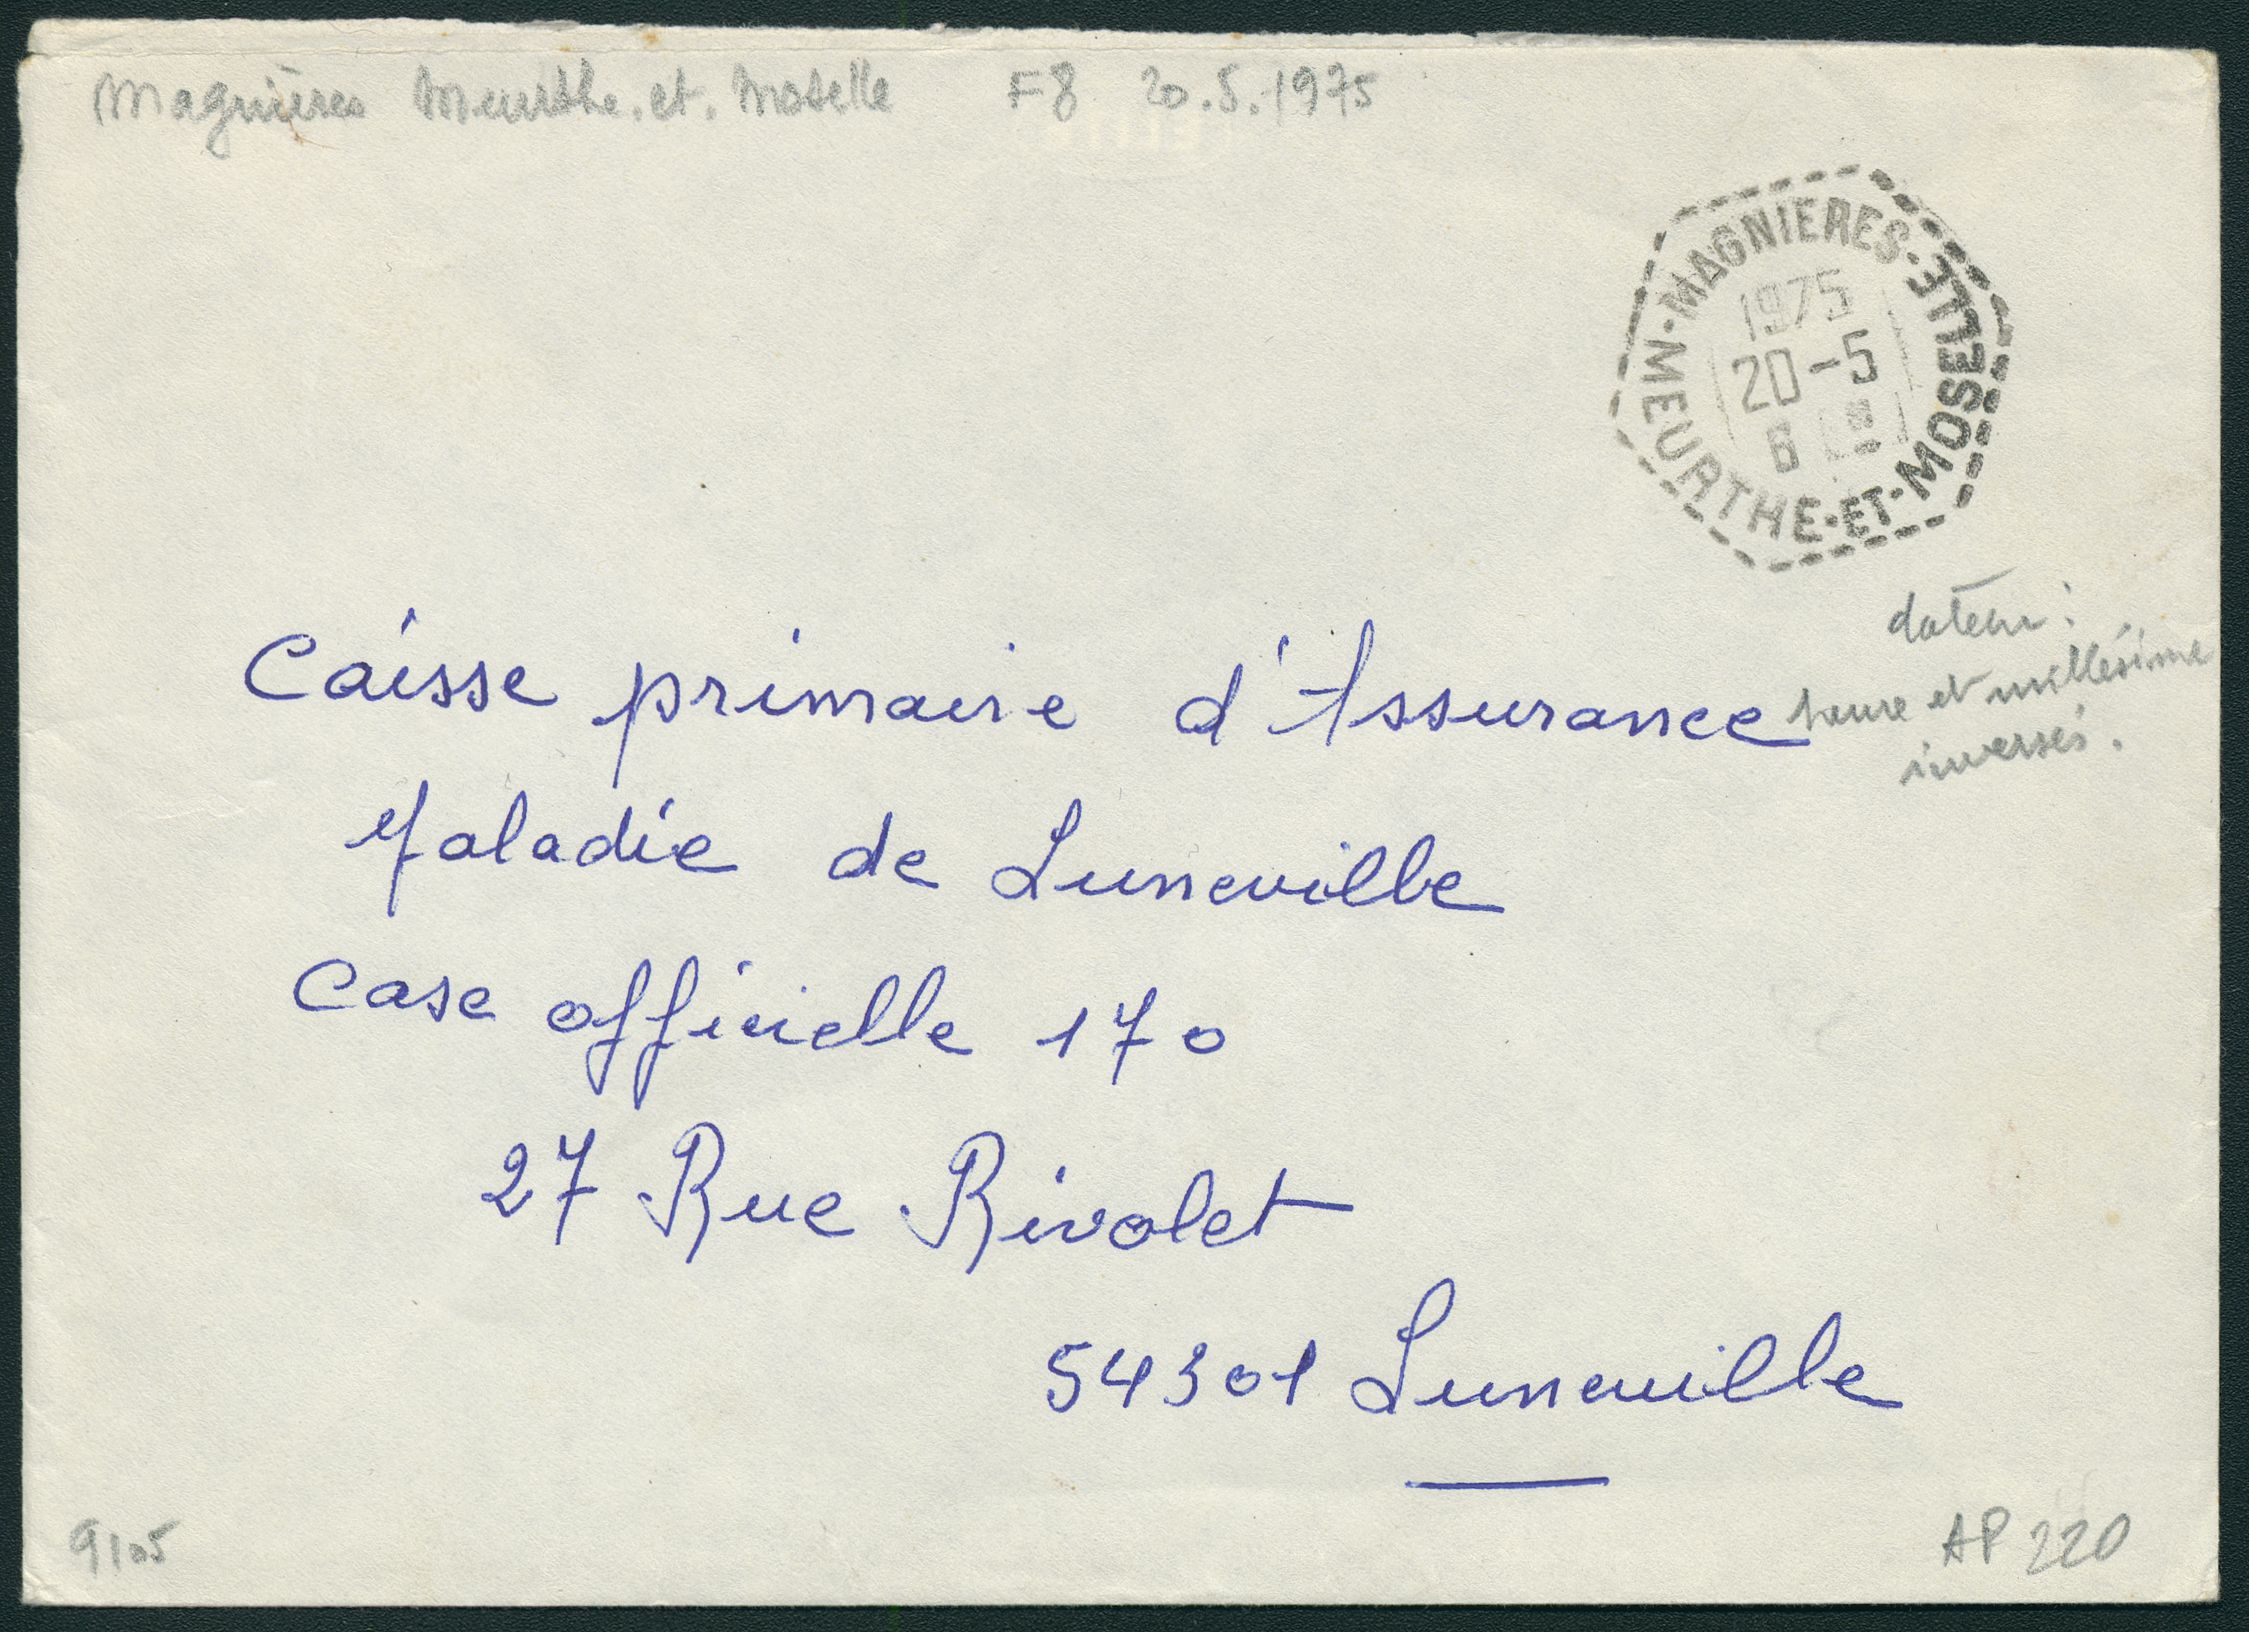 Magnières Meurthe.et.Moselle F8 20.5.1975
MAGNIERES
MEURTHE-ET-MOSELLE
1975
20-5
6
dateur :
heure et millésime
inversés.
Caisse primaire d'Assurance
Maladie de Luneville
Case officielle 170
27 Rue Rivolet
54301 Luneville
9105
AP 220